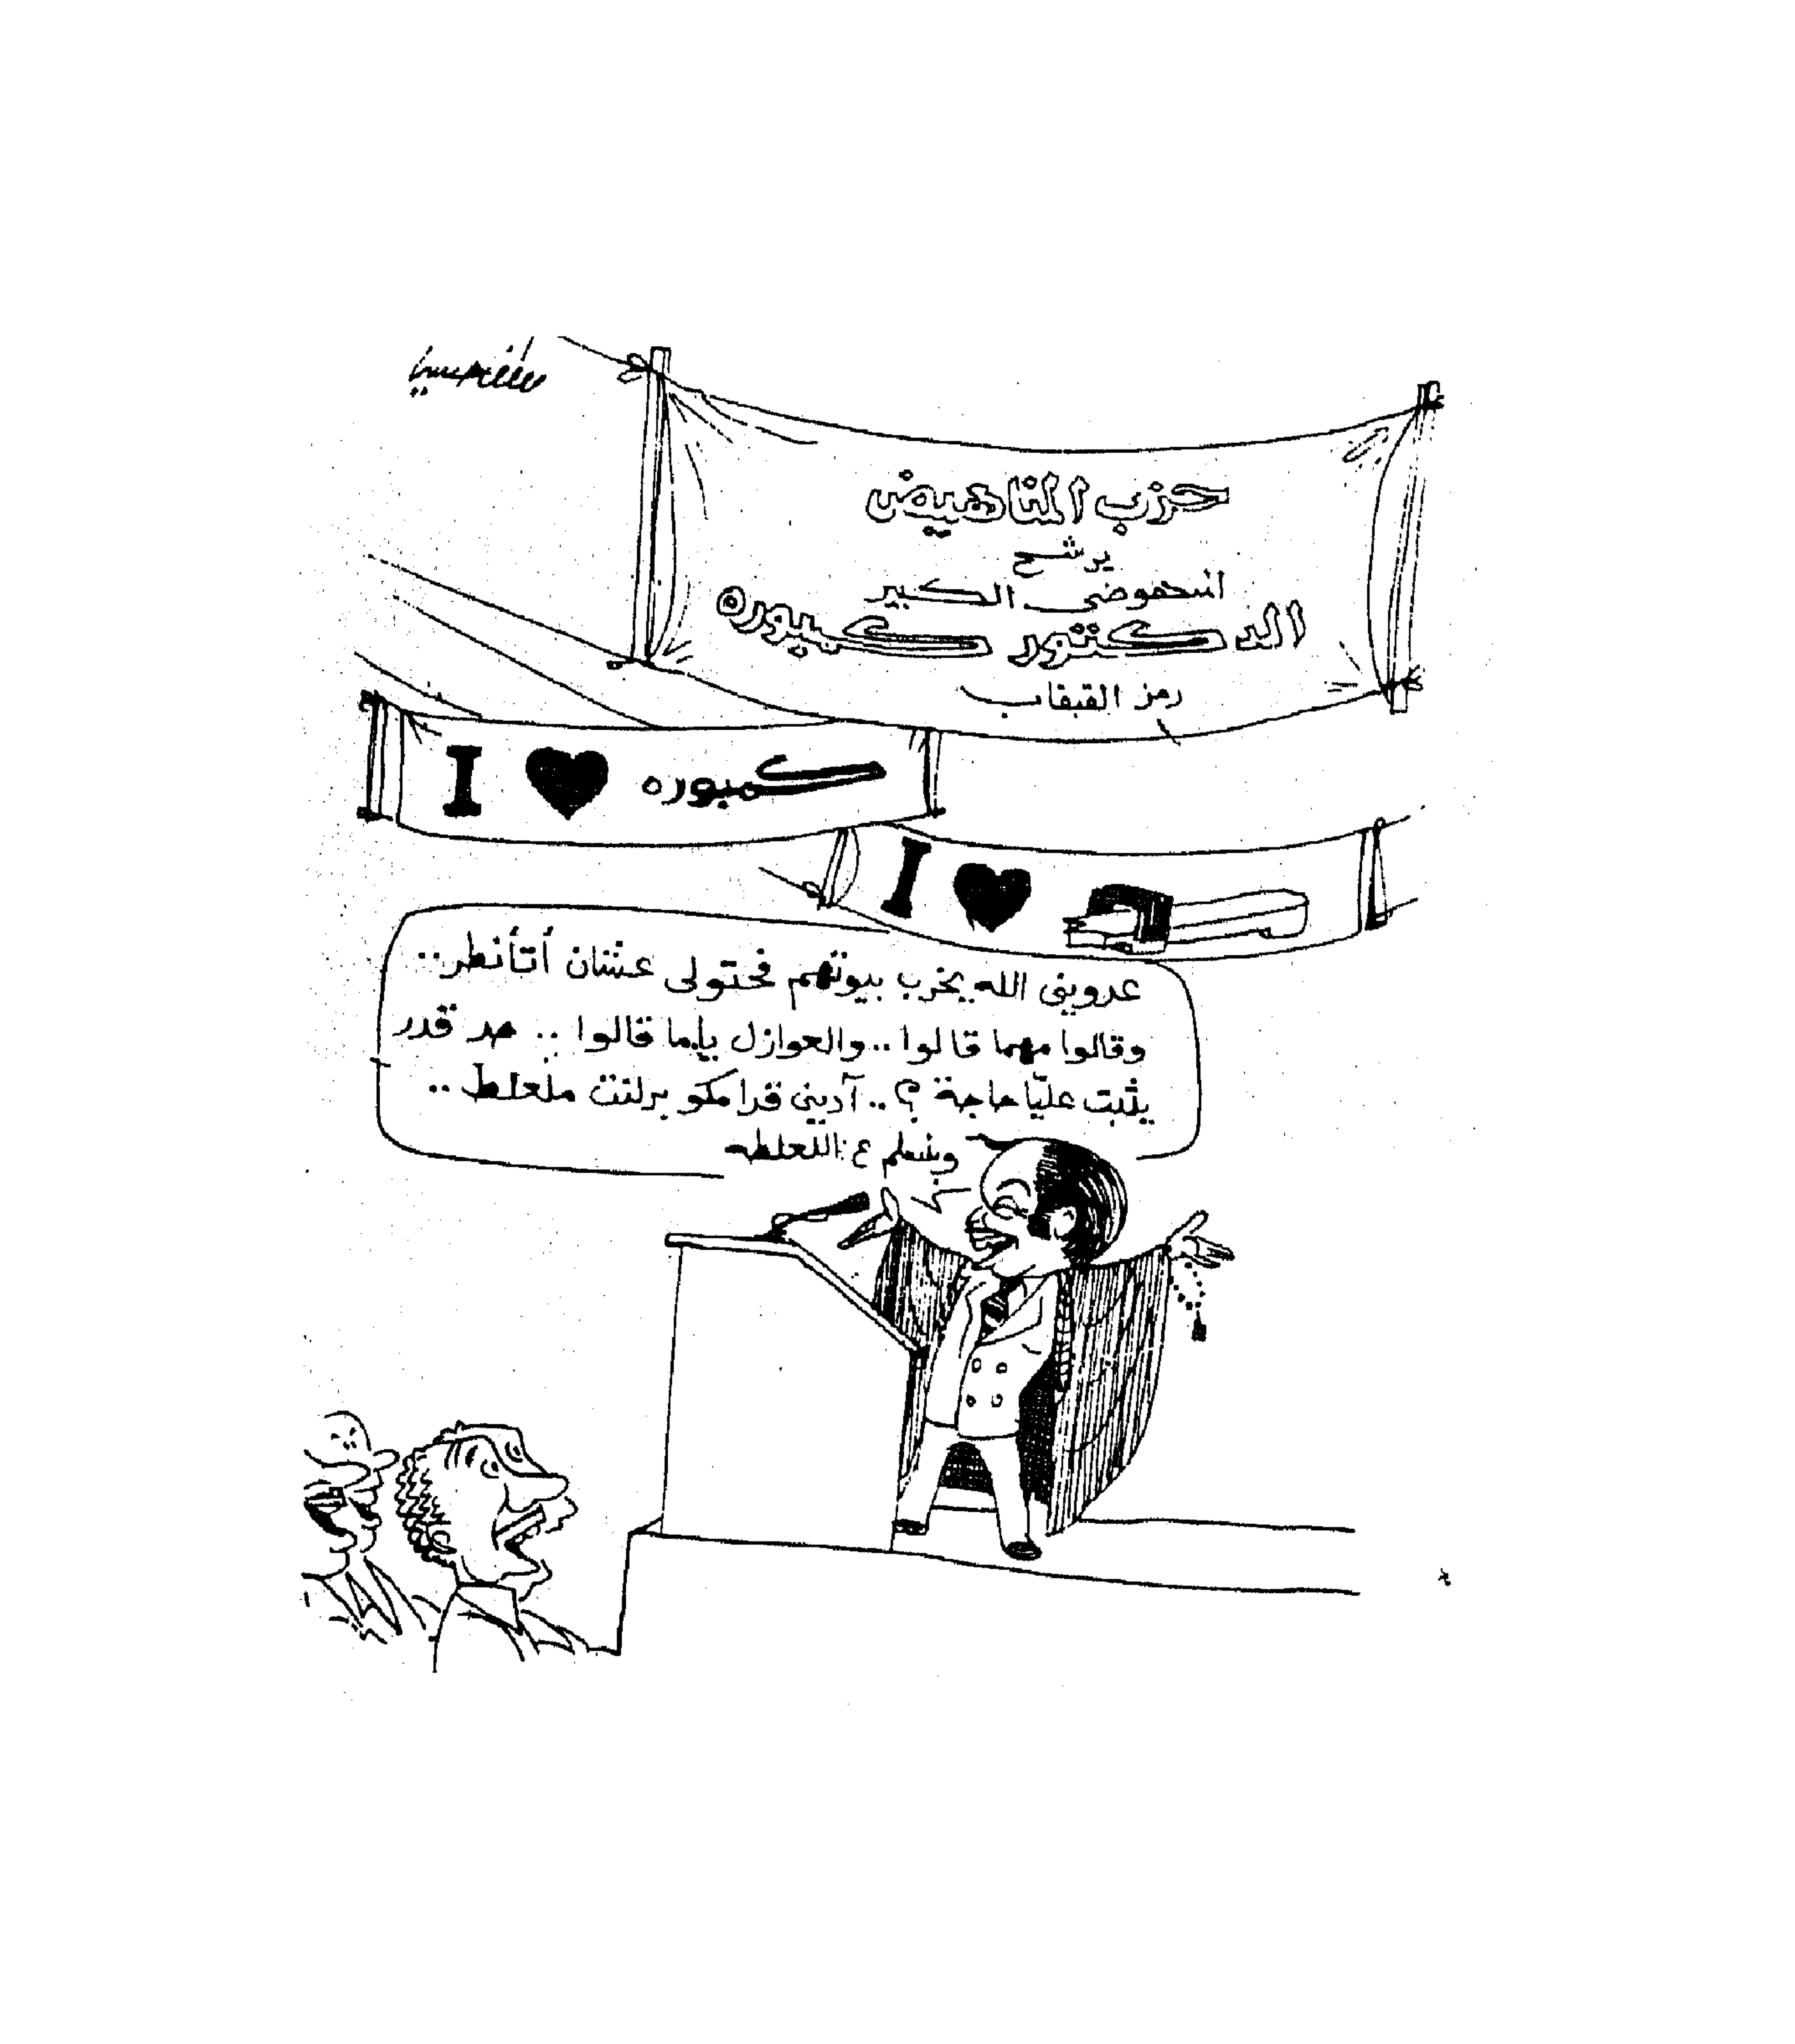 حزب المناهيض
يرشح
النحموضى الكبير
الدكتور كمبوره
رمز القبقاب
I ♥ كمبوره
I ♥
عدوينى الله يخرب بيوتهم فحتولى عشان أتأنطر..
وقالوا مهما قالوا.. والعوازل ياما قالوا .. حد قدر
يثبت عليّا حاجة ؟.. آدينى قدامكو برلنت ملعلط ..
وسلم ع اللعلطه